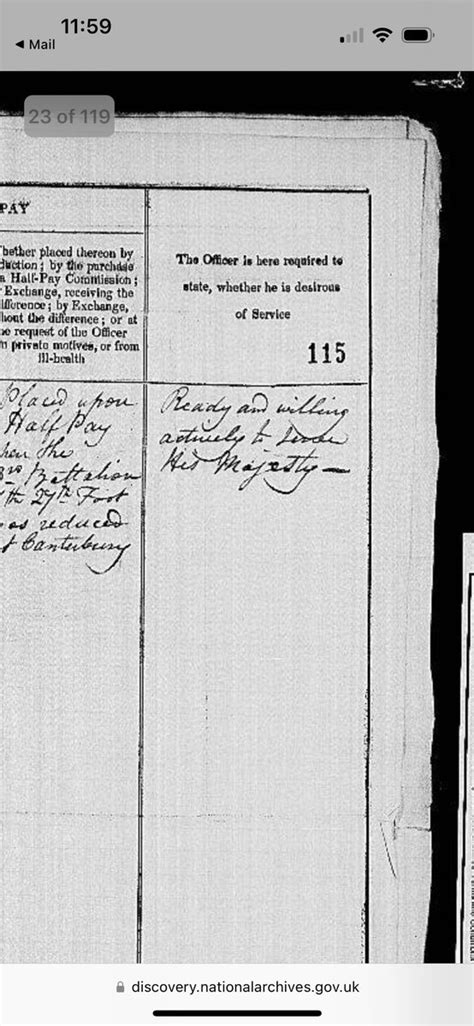 11:59
◀ Mail
23 of 119
PAY
hether placed thereon by
duction; by the purchase
a Half-Pay Commission;
Exchange, receiving the
ifference; by Exchange,
hout the difference; or at
he request of the Officer
m private motives, or from
ill-health
The Officer is here required to
state, whether he is desirous
of Service
115
Placed upon
Half Pay
when the
3rd Battalion
27th Foot
was reduced
at Canterbury
Ready and willing
actively to serve
His Majesty—
discovery.nationalarchives.gov.uk